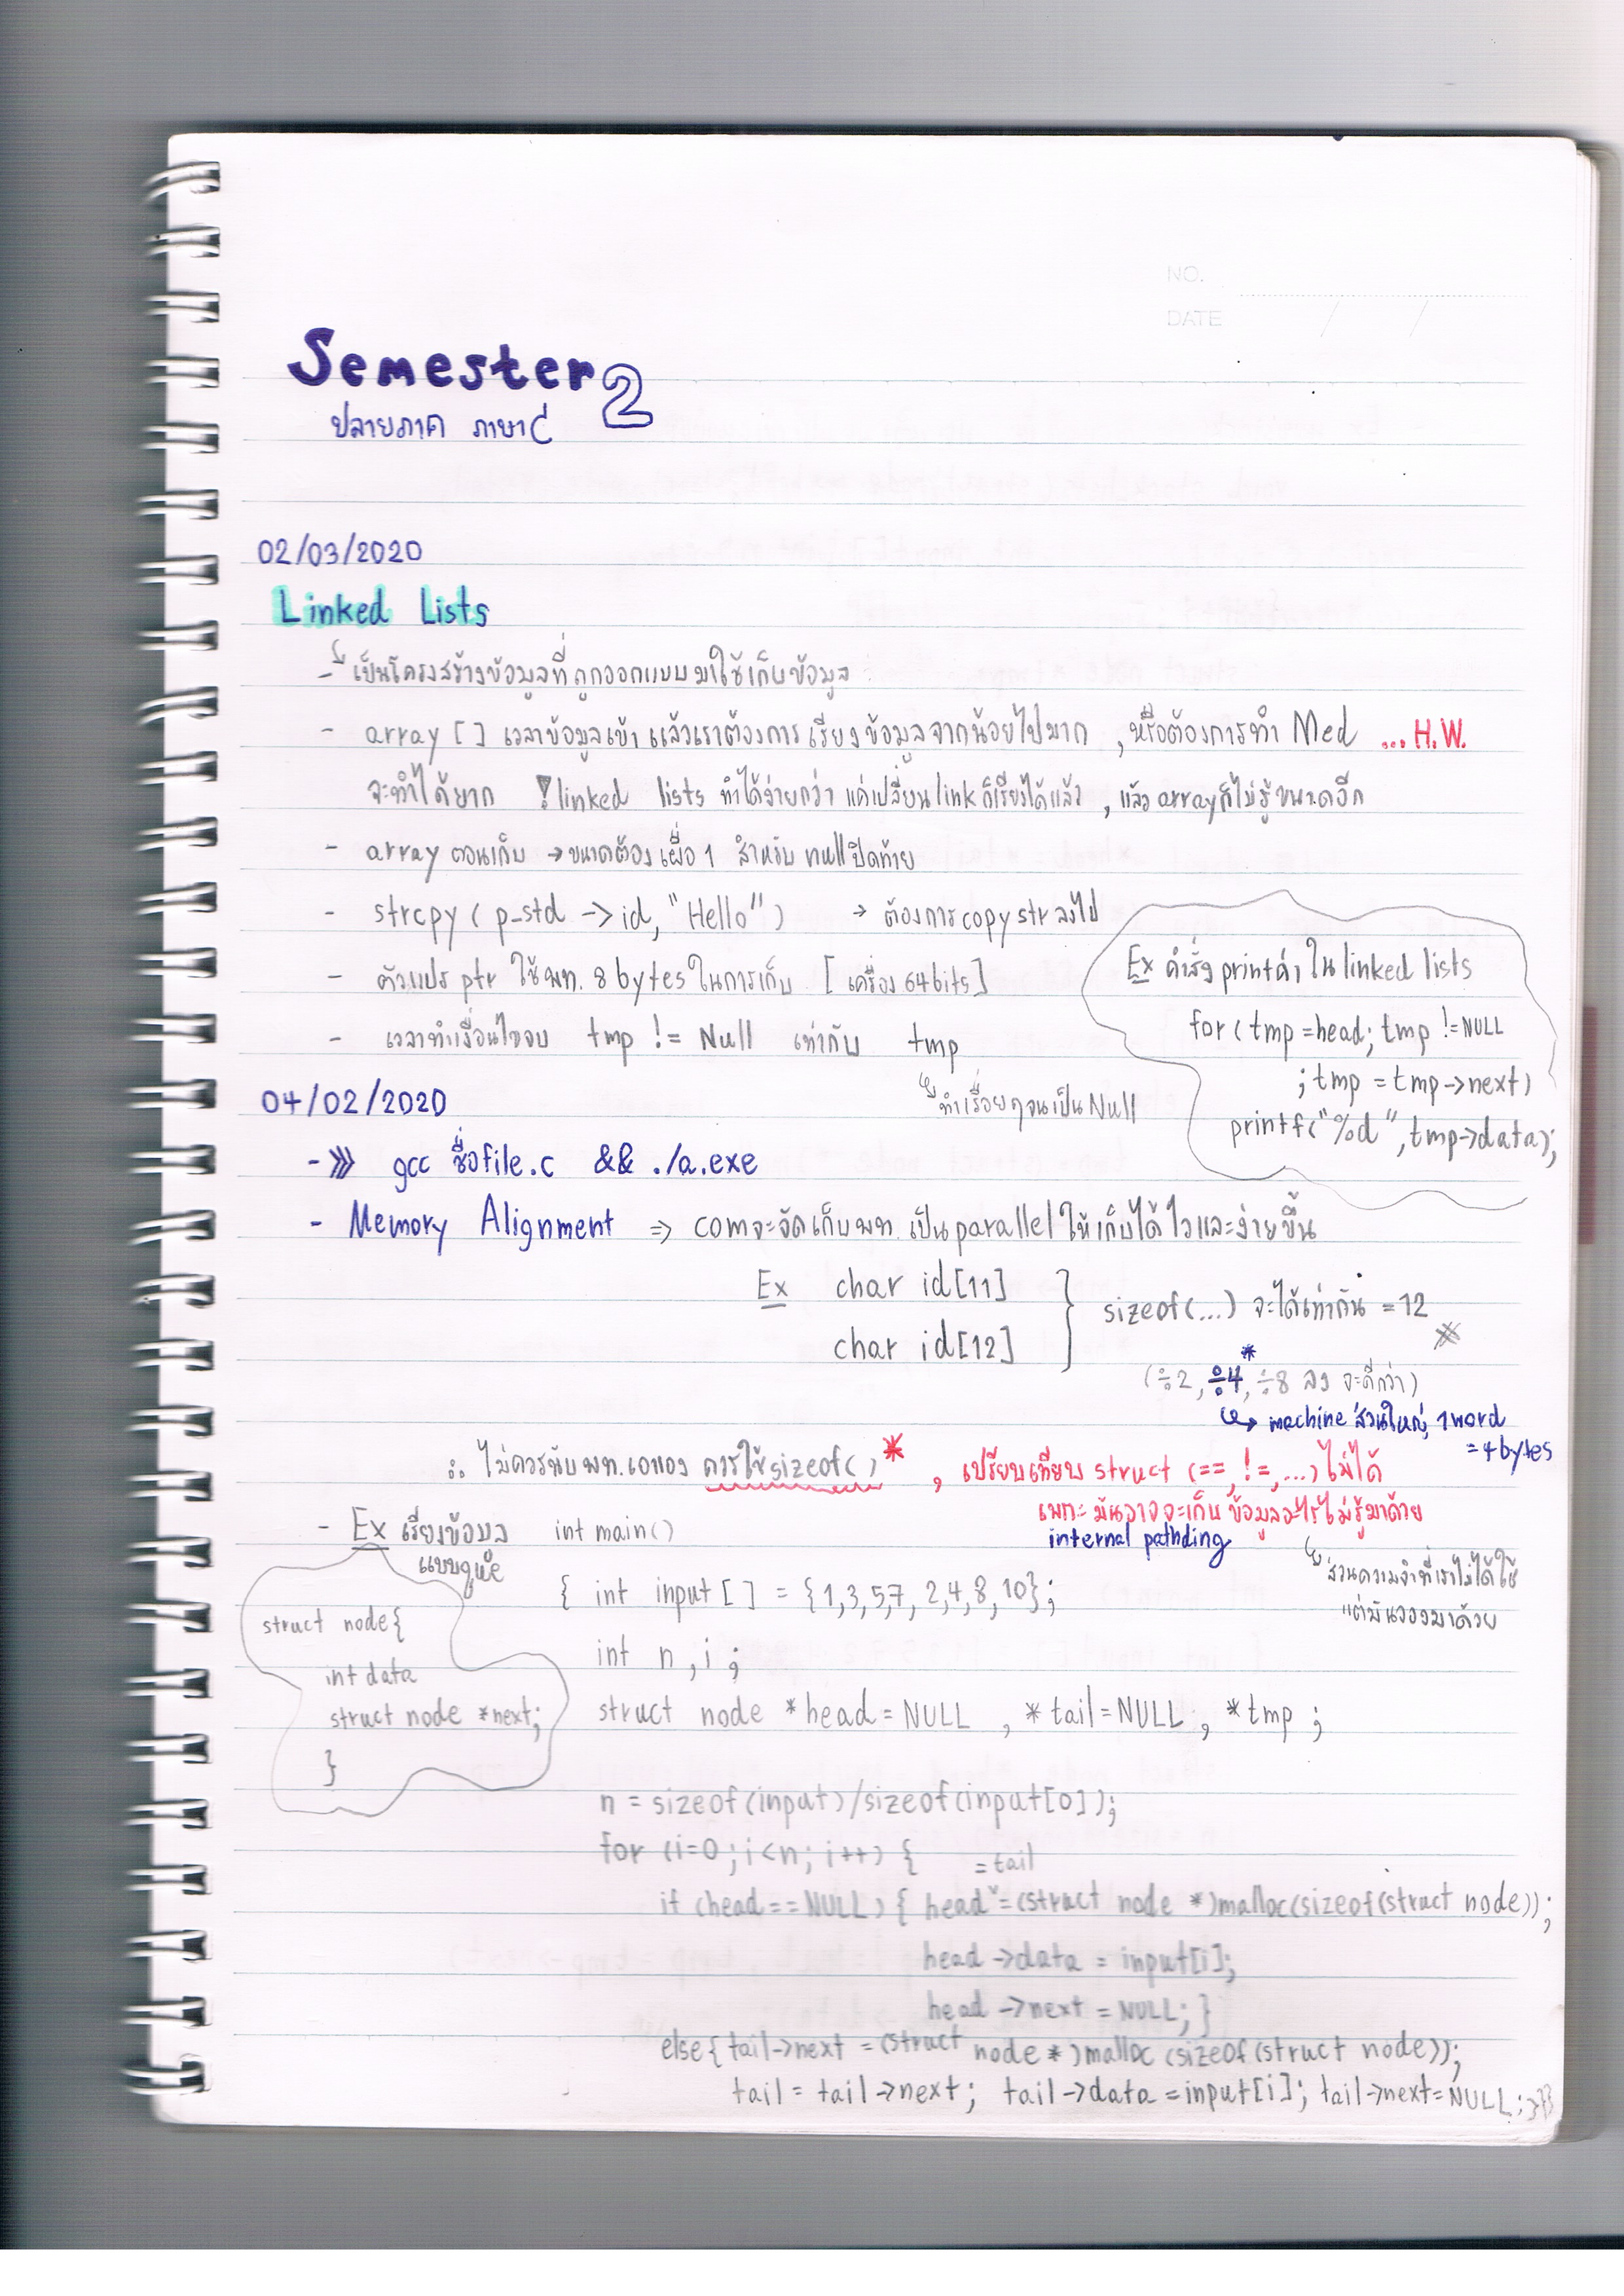 NO.
DATE / /
Semester 2
ปลายภาค ภาษาC
02/03/2020
Linked Lists
- เป็นโครงสร้างข้อมูลที่ถูกออกแบบมาใช้เก็บข้อมูล
- array [ ] เวลาข้อมูลเข้า แล้วเราต้องการ เรียงข้อมูลจากน้อยไปมาก , หรือต้องการทำ Med ... H.W.
จะทำได้ยาก linked lists ทำได้ง่ายกว่า แค่เปลี่ยน link ก็เรียงได้แล้ว , แล้ว array ก็ไม่รู้ขนาดอีก
- array ตอนเก็บ → ขนาดต้อง เผื่อ 1 สำหรับ null ปิดท้าย
- strcpy ( p_std -> id, "Hello" ) → ต้องการ copy str ลงไป
- ตัวแปร ptr ใช้ พท. 8 bytes ในการเก็บ [ เครื่อง 64 bits ]
- เวลาทำเงื่อนไขจบ tmp != Null เท่ากับ tmp
ทำเรื่อยๆจนเป็น Null
Ex คำสั่ง print ค่า ใน linked lists
for ( tmp = head; tmp != NULL
; tmp = tmp->next)
printf("%d", tmp->data);
04/02/2020
->>> gcc ชื่อfile.c && ./a.exe
- Memory Alignment => com จะจัดเก็บ พท. เป็น parallel ให้เก็บได้ไวและง่ายขึ้น
Ex char id[11]
char id[12]
} sizeof(...) จะได้เท่ากัน = 12
(÷2, ÷4*, ÷8 ลง จะดีกว่า)
↳ machine ส่วนใหญ่ 1 word
= 4 bytes
∴ ไม่ควรนับ พท. เอาเอง ควรใช้ sizeof() * , เปรียบเทียบ struct (==, !=, ...) ไม่ได้
เพราะ มันอาจจะเก็บ ข้อมูลอะไรไม่รู้มาด้วย
internal pathding
ส่วนความจำที่เราไม่ได้ใช้
แต่มันจองมาด้วย
- Ex เรียงข้อมูล
แบบ
struct node{
int data
struct node *next;
}
int main()
{ int input [ ] = {1,3,5,7, 2,4,8,10};
int n , i ;
struct node *head = NULL , *tail = NULL , *tmp ;
n = sizeof(input)/sizeof(input[0]);
for (i=0 ; i<n ; i++) {
if (head == NULL) { head =tail = (struct node *)malloc(sizeof(struct node));
head ->data = input[i];
head ->next = NULL; }
else{ tail->next = (struct node *)malloc (sizeof (struct node));
tail = tail ->next ; tail->data = input[i] ; tail->next = NULL ; }}}